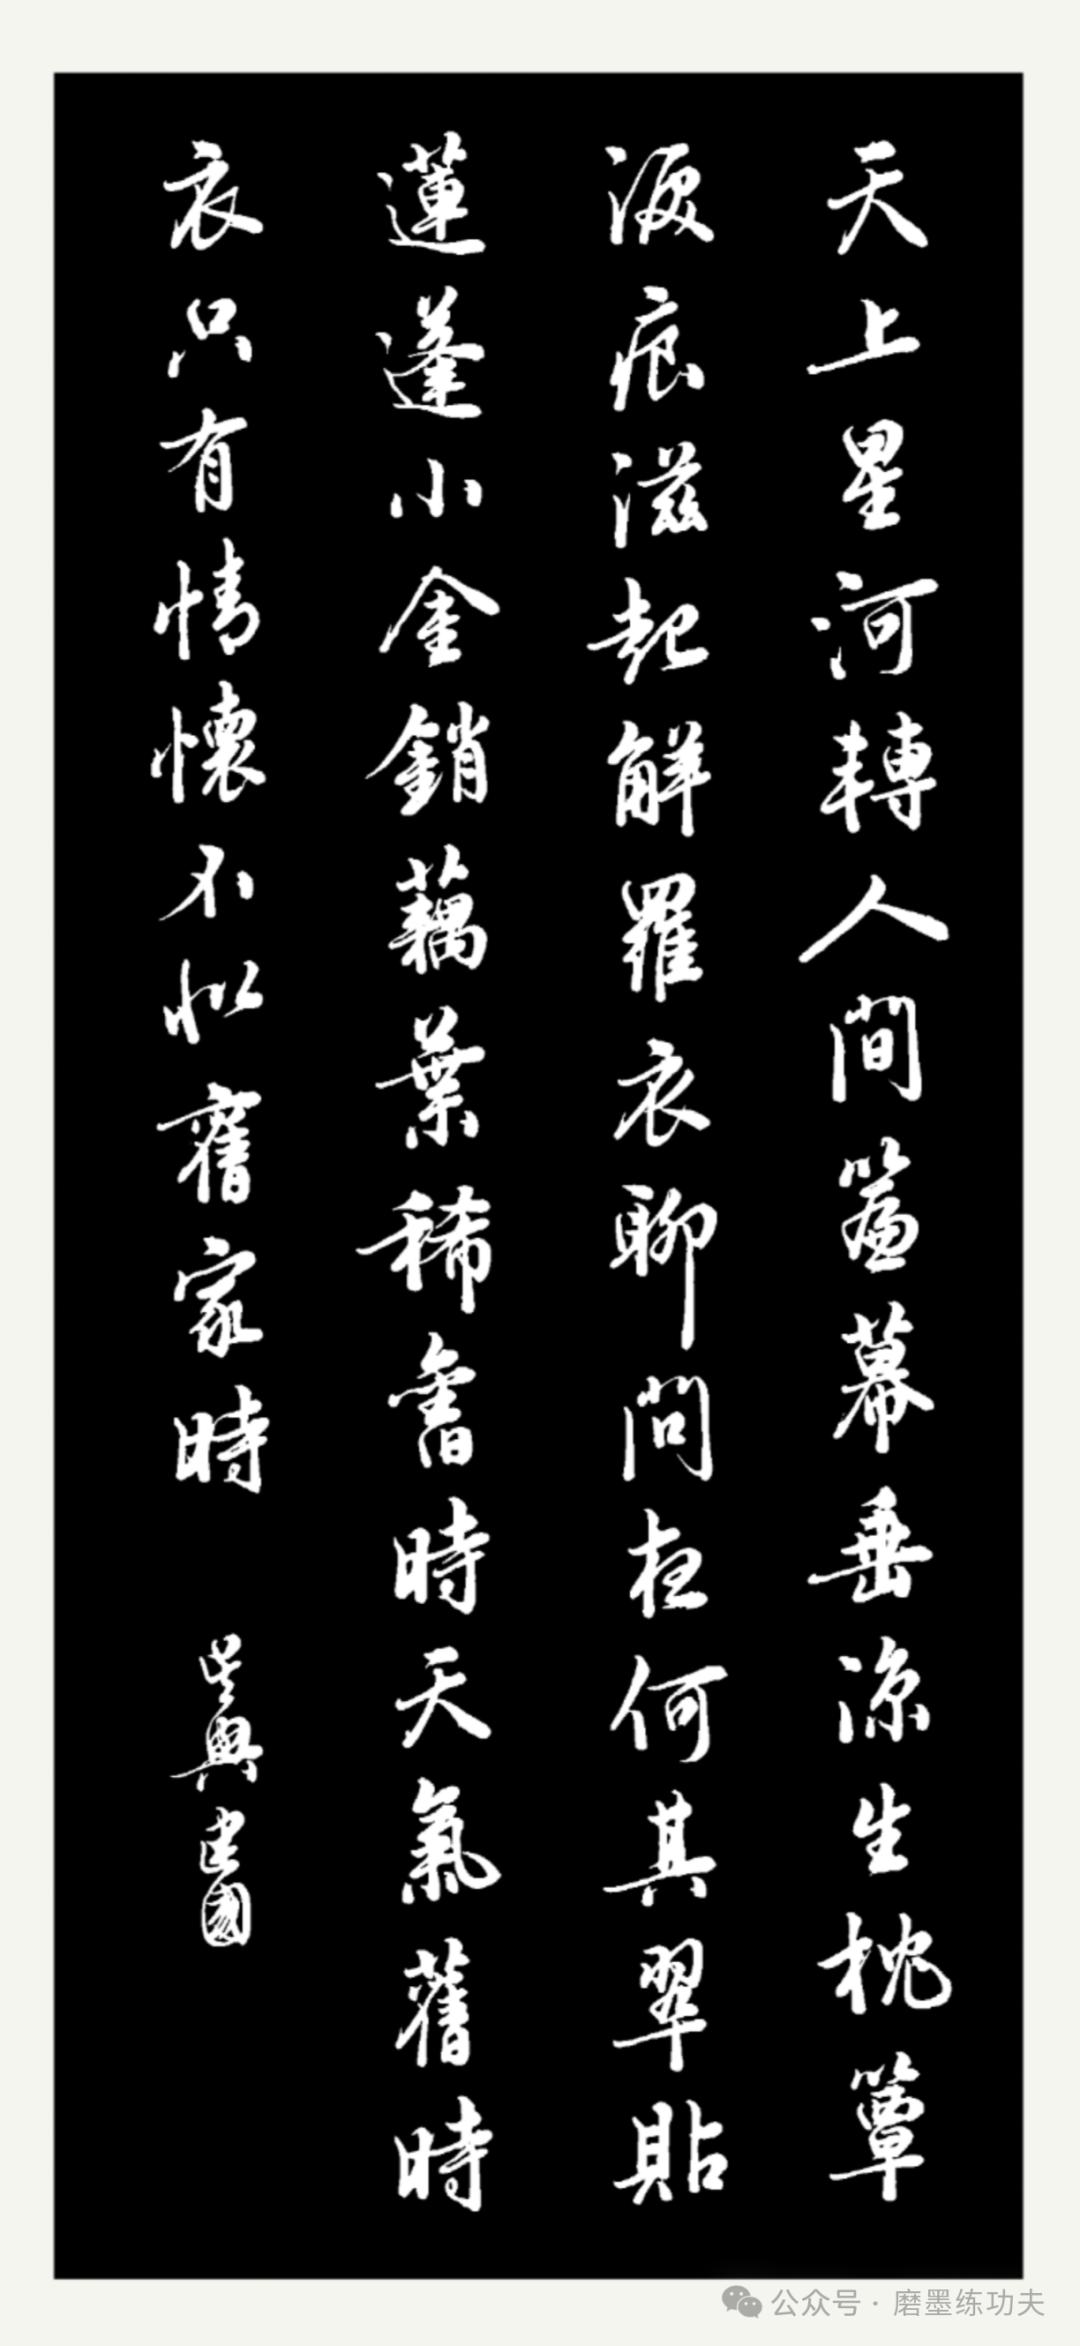 天上星河轉人間簾幕垂涼生枕簟
淚痕滋起解羅衣聊問夜何其翠貼
蓮蓬小金銷藕葉稀舊時天氣舊時
衣只有情懷不似舊家時
吳興建國
公众号 · 磨墨练功夫